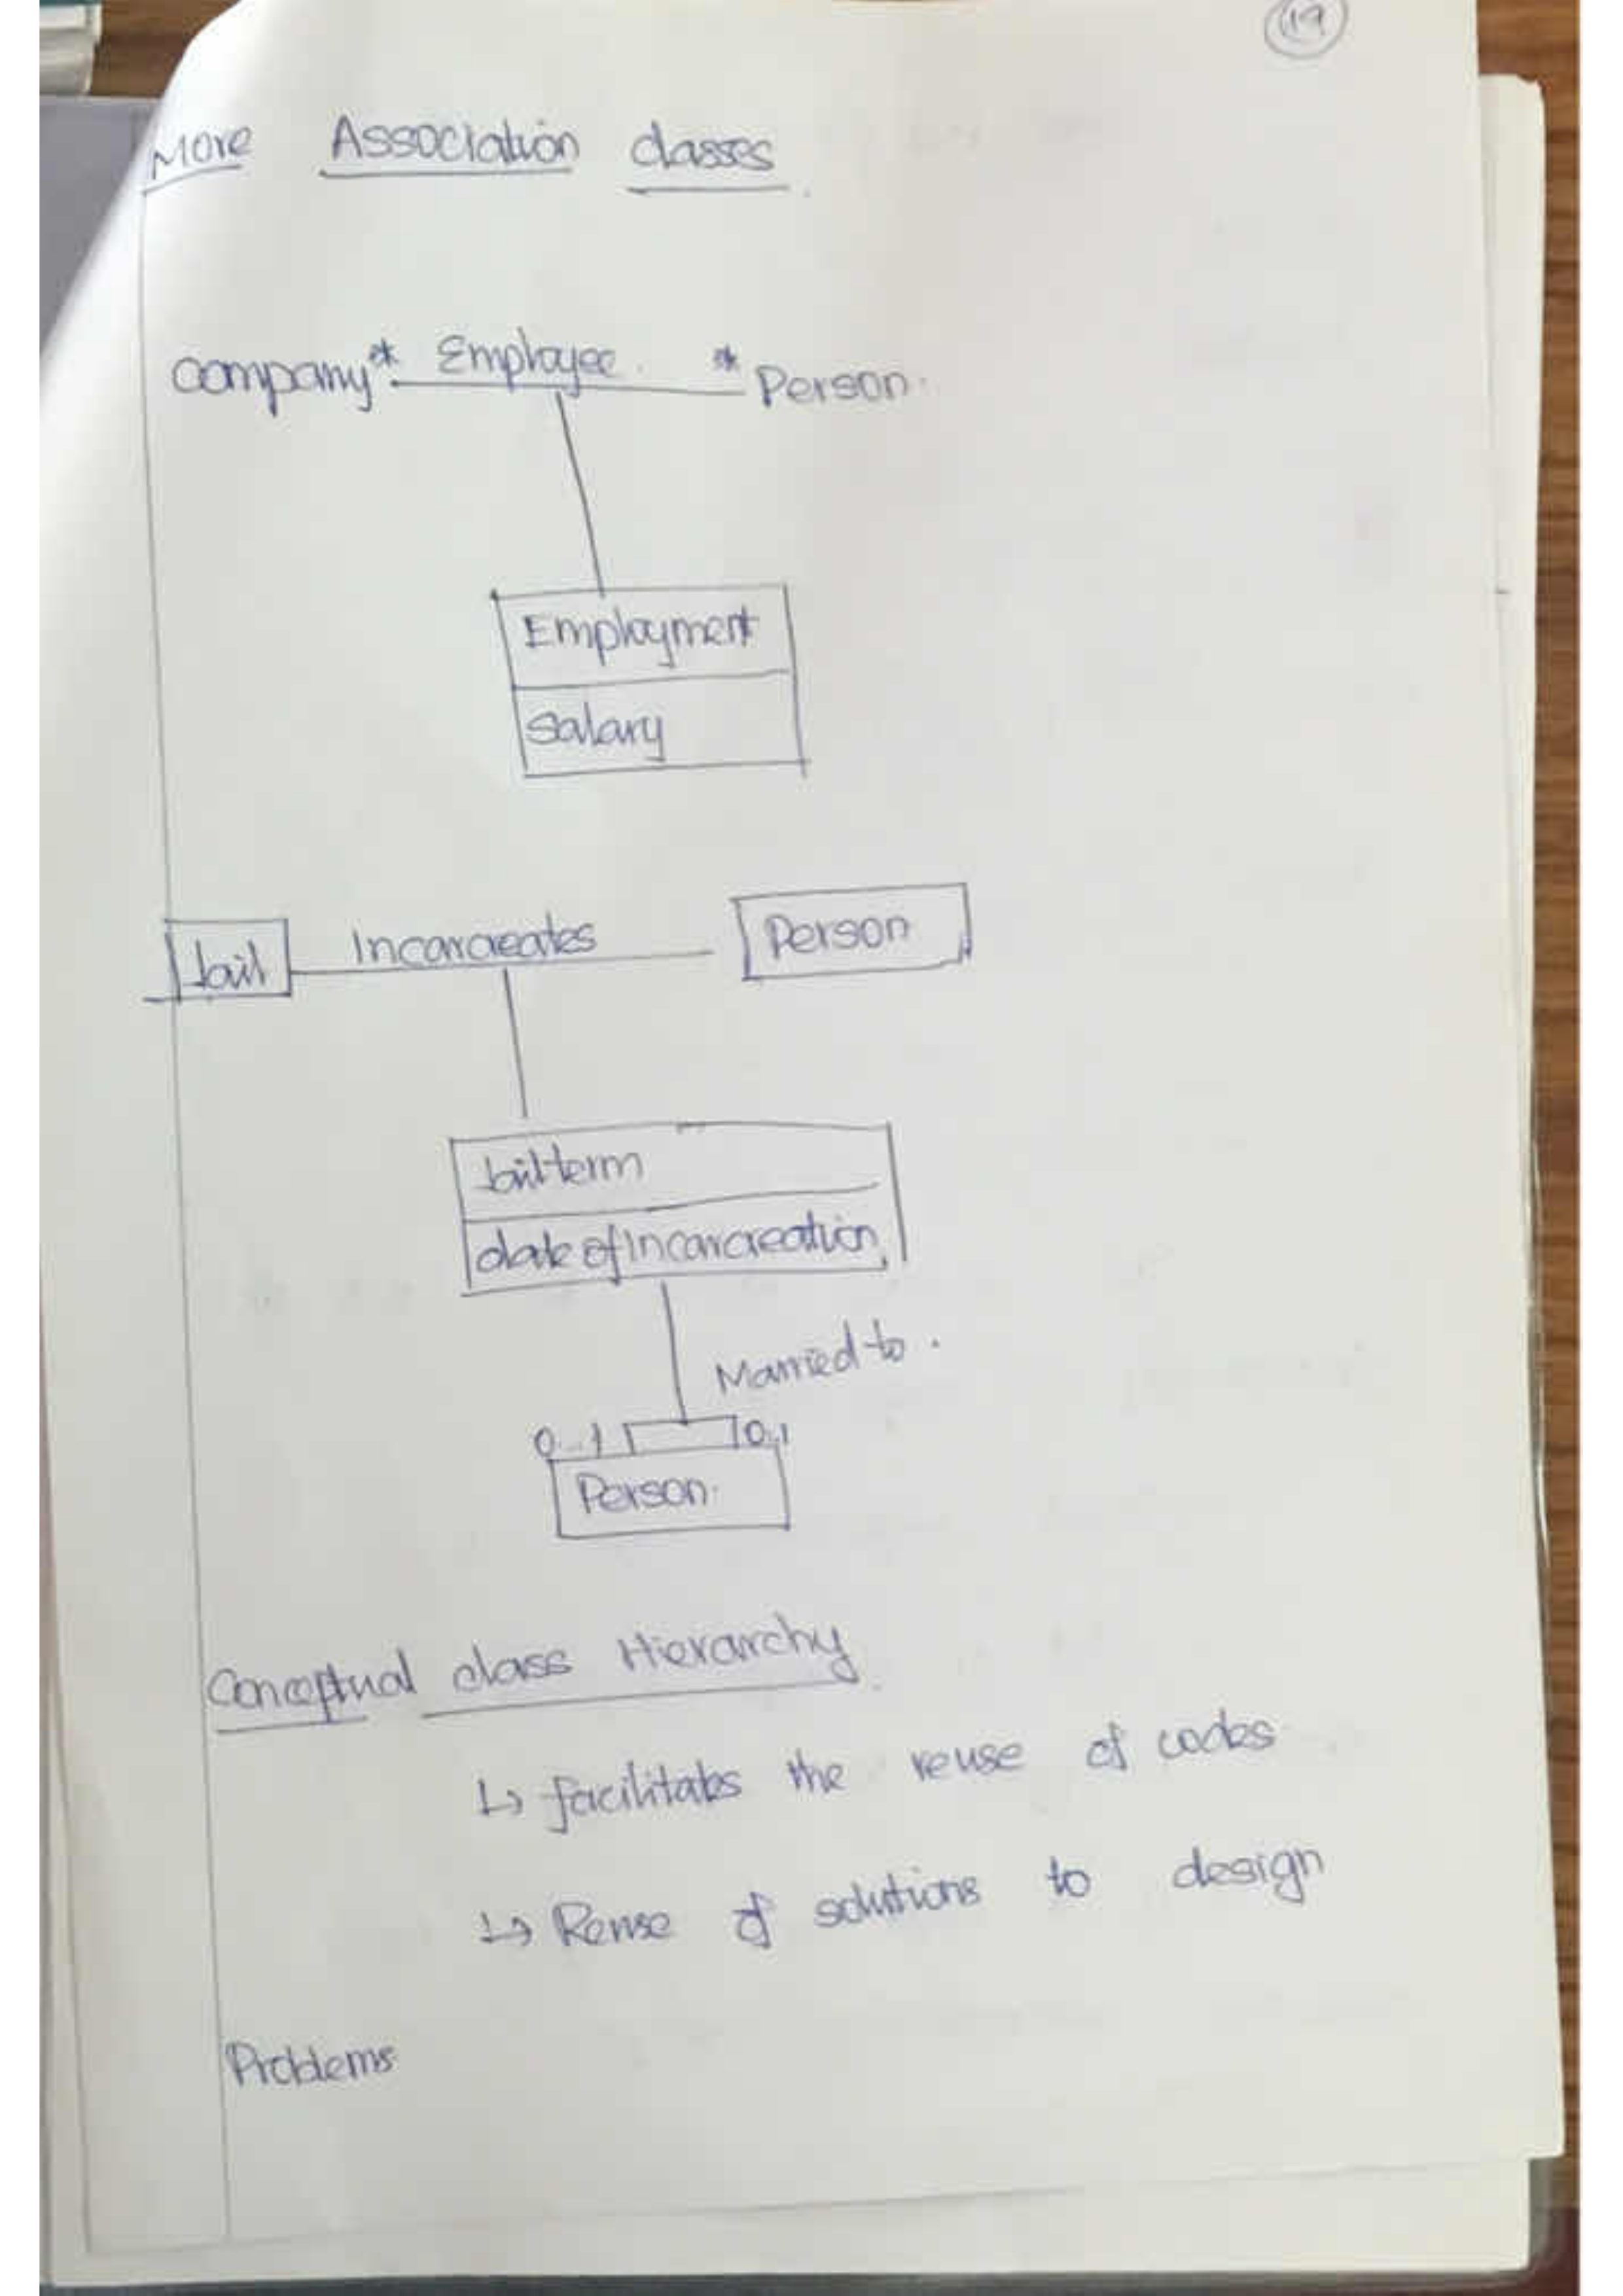 19
More Association classes.
Company * Employee. * Person.
Employment
Salary
Jail Incarcreates Person
Jail term
date of Incarcreation
Married to.
0..1 0..1
Person.
Conceptual class Hierarchy.
↳ facilitates the reuse of codes
↳ Reuse of solutions to design
Problems